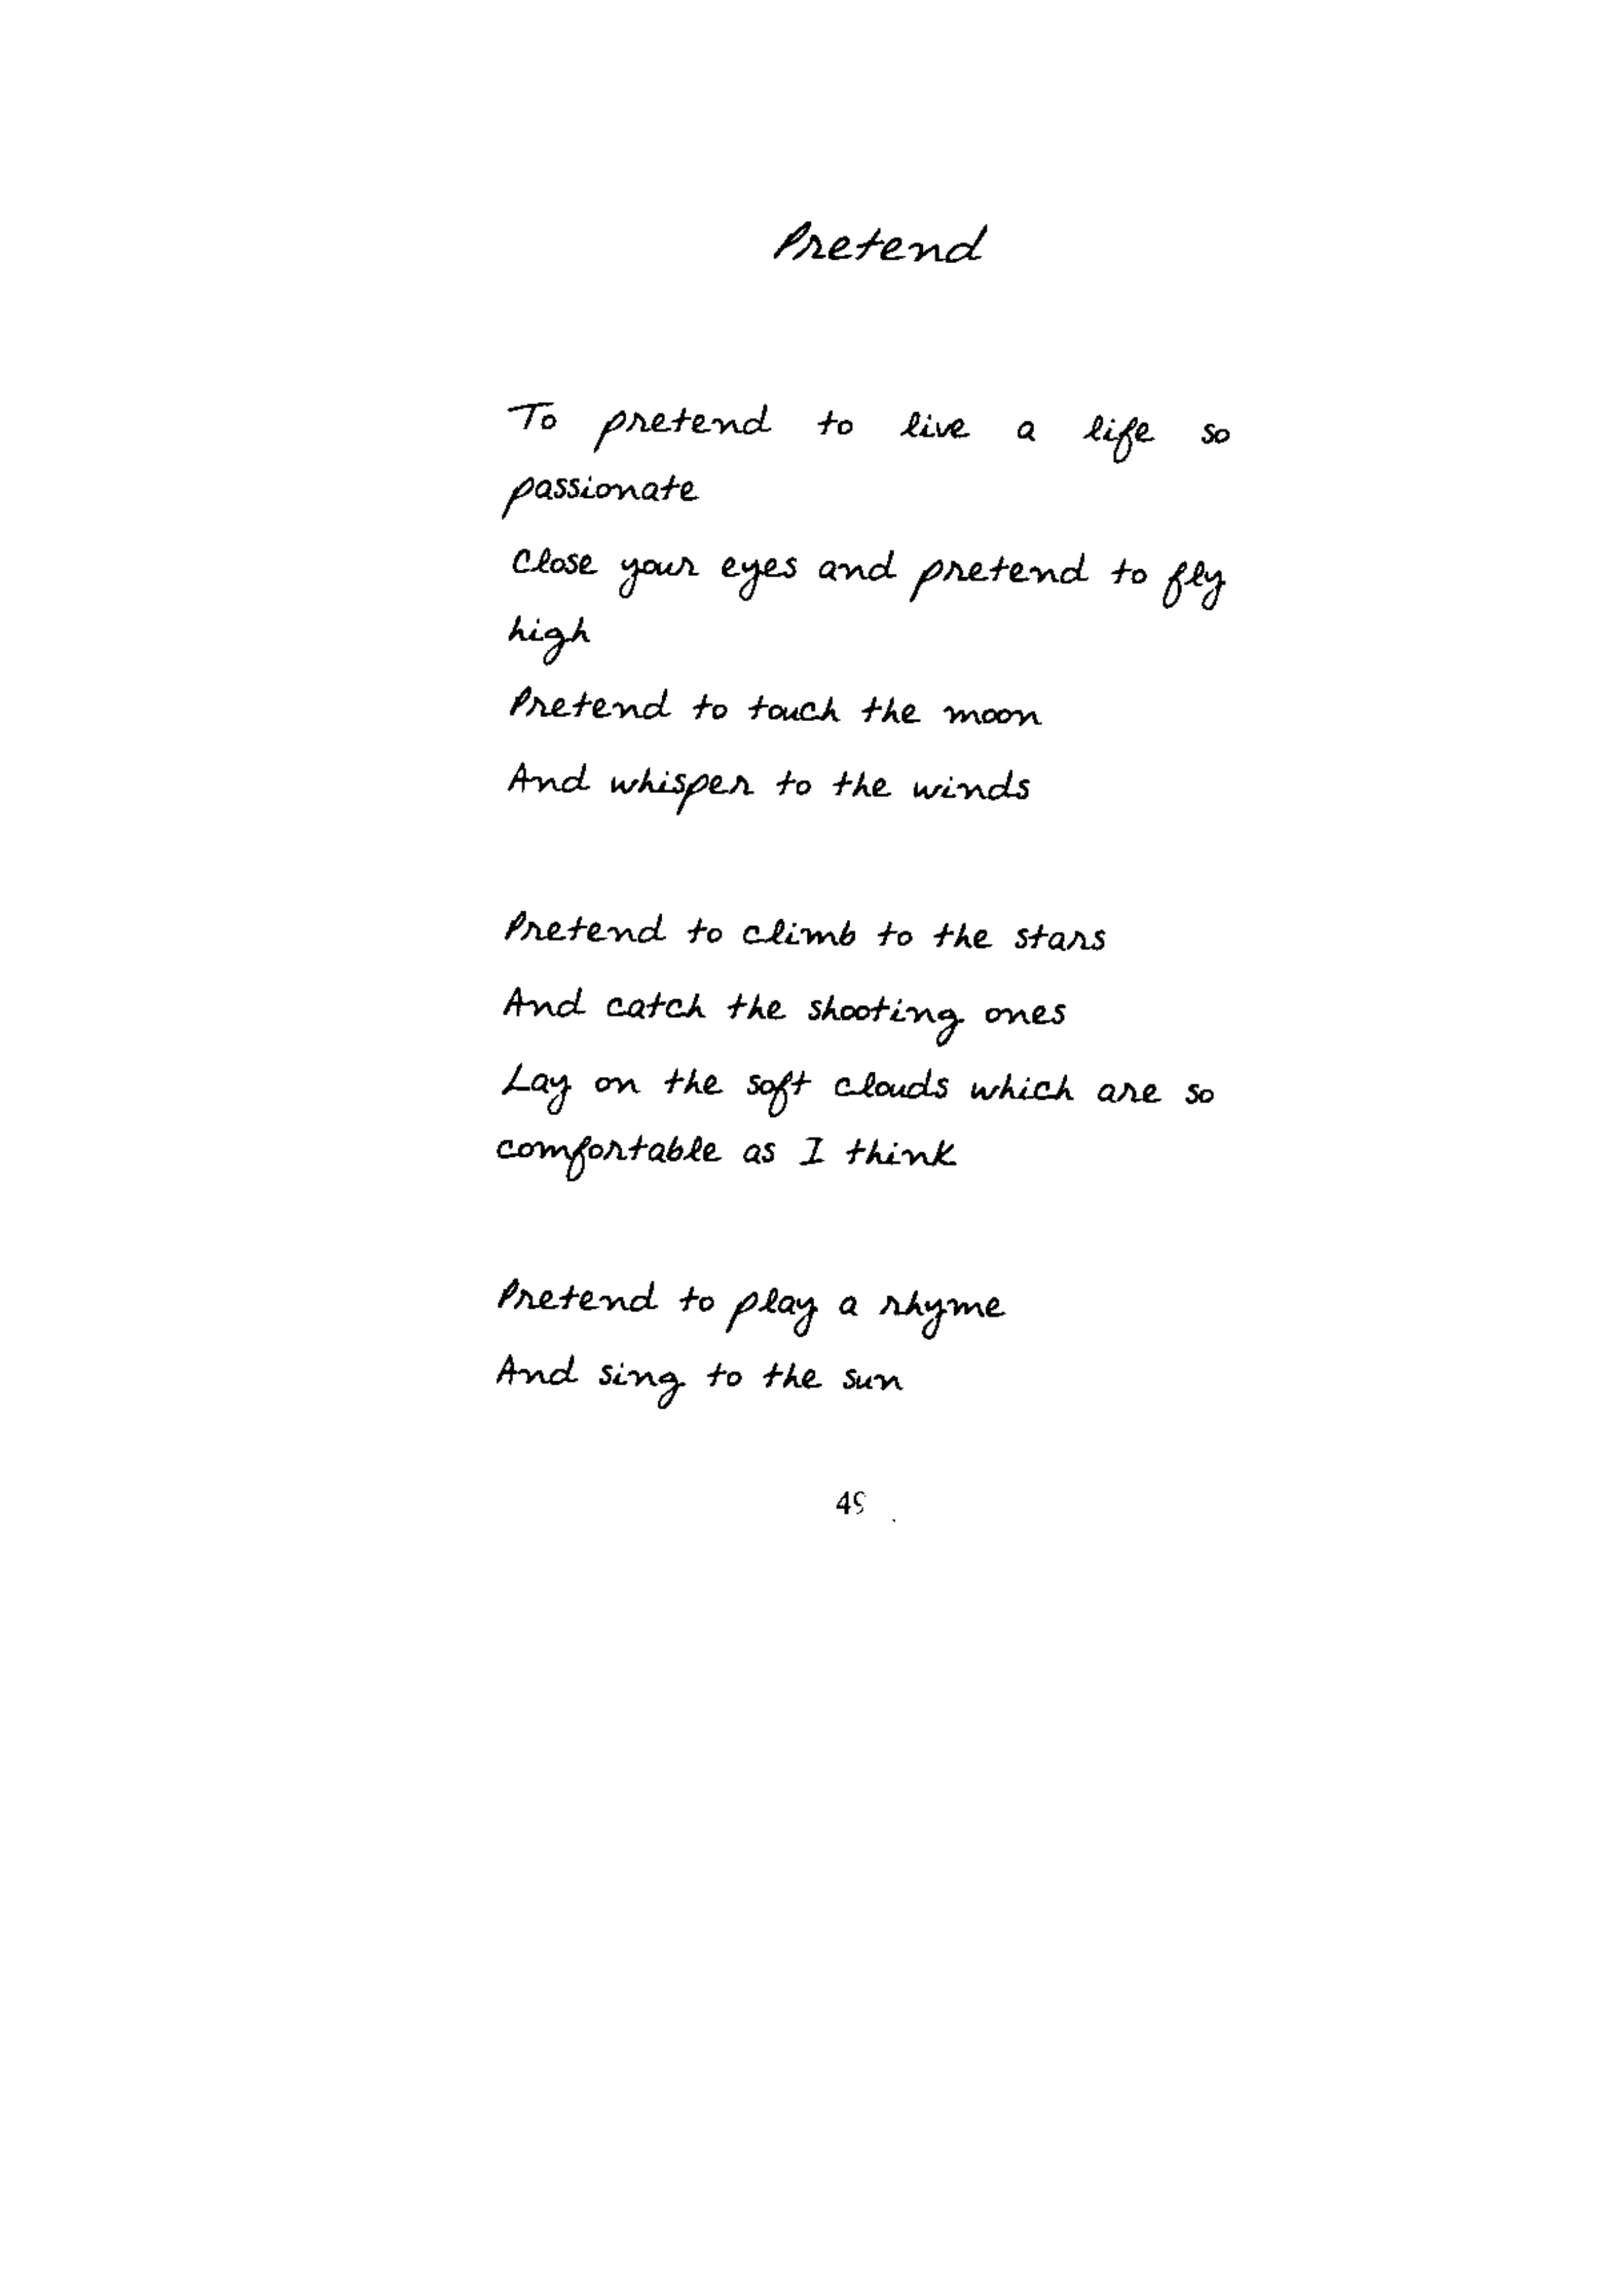 Pretend
To pretend to live a life so
passionate
Close your eyes and pretend to fly
high
Pretend to touch the moon
And whisper to the winds
Pretend to climb to the stars
And catch the shooting ones
Lay on the soft clouds which are so
comfortable as I think
Pretend to play a rhyme
And sing to the sun